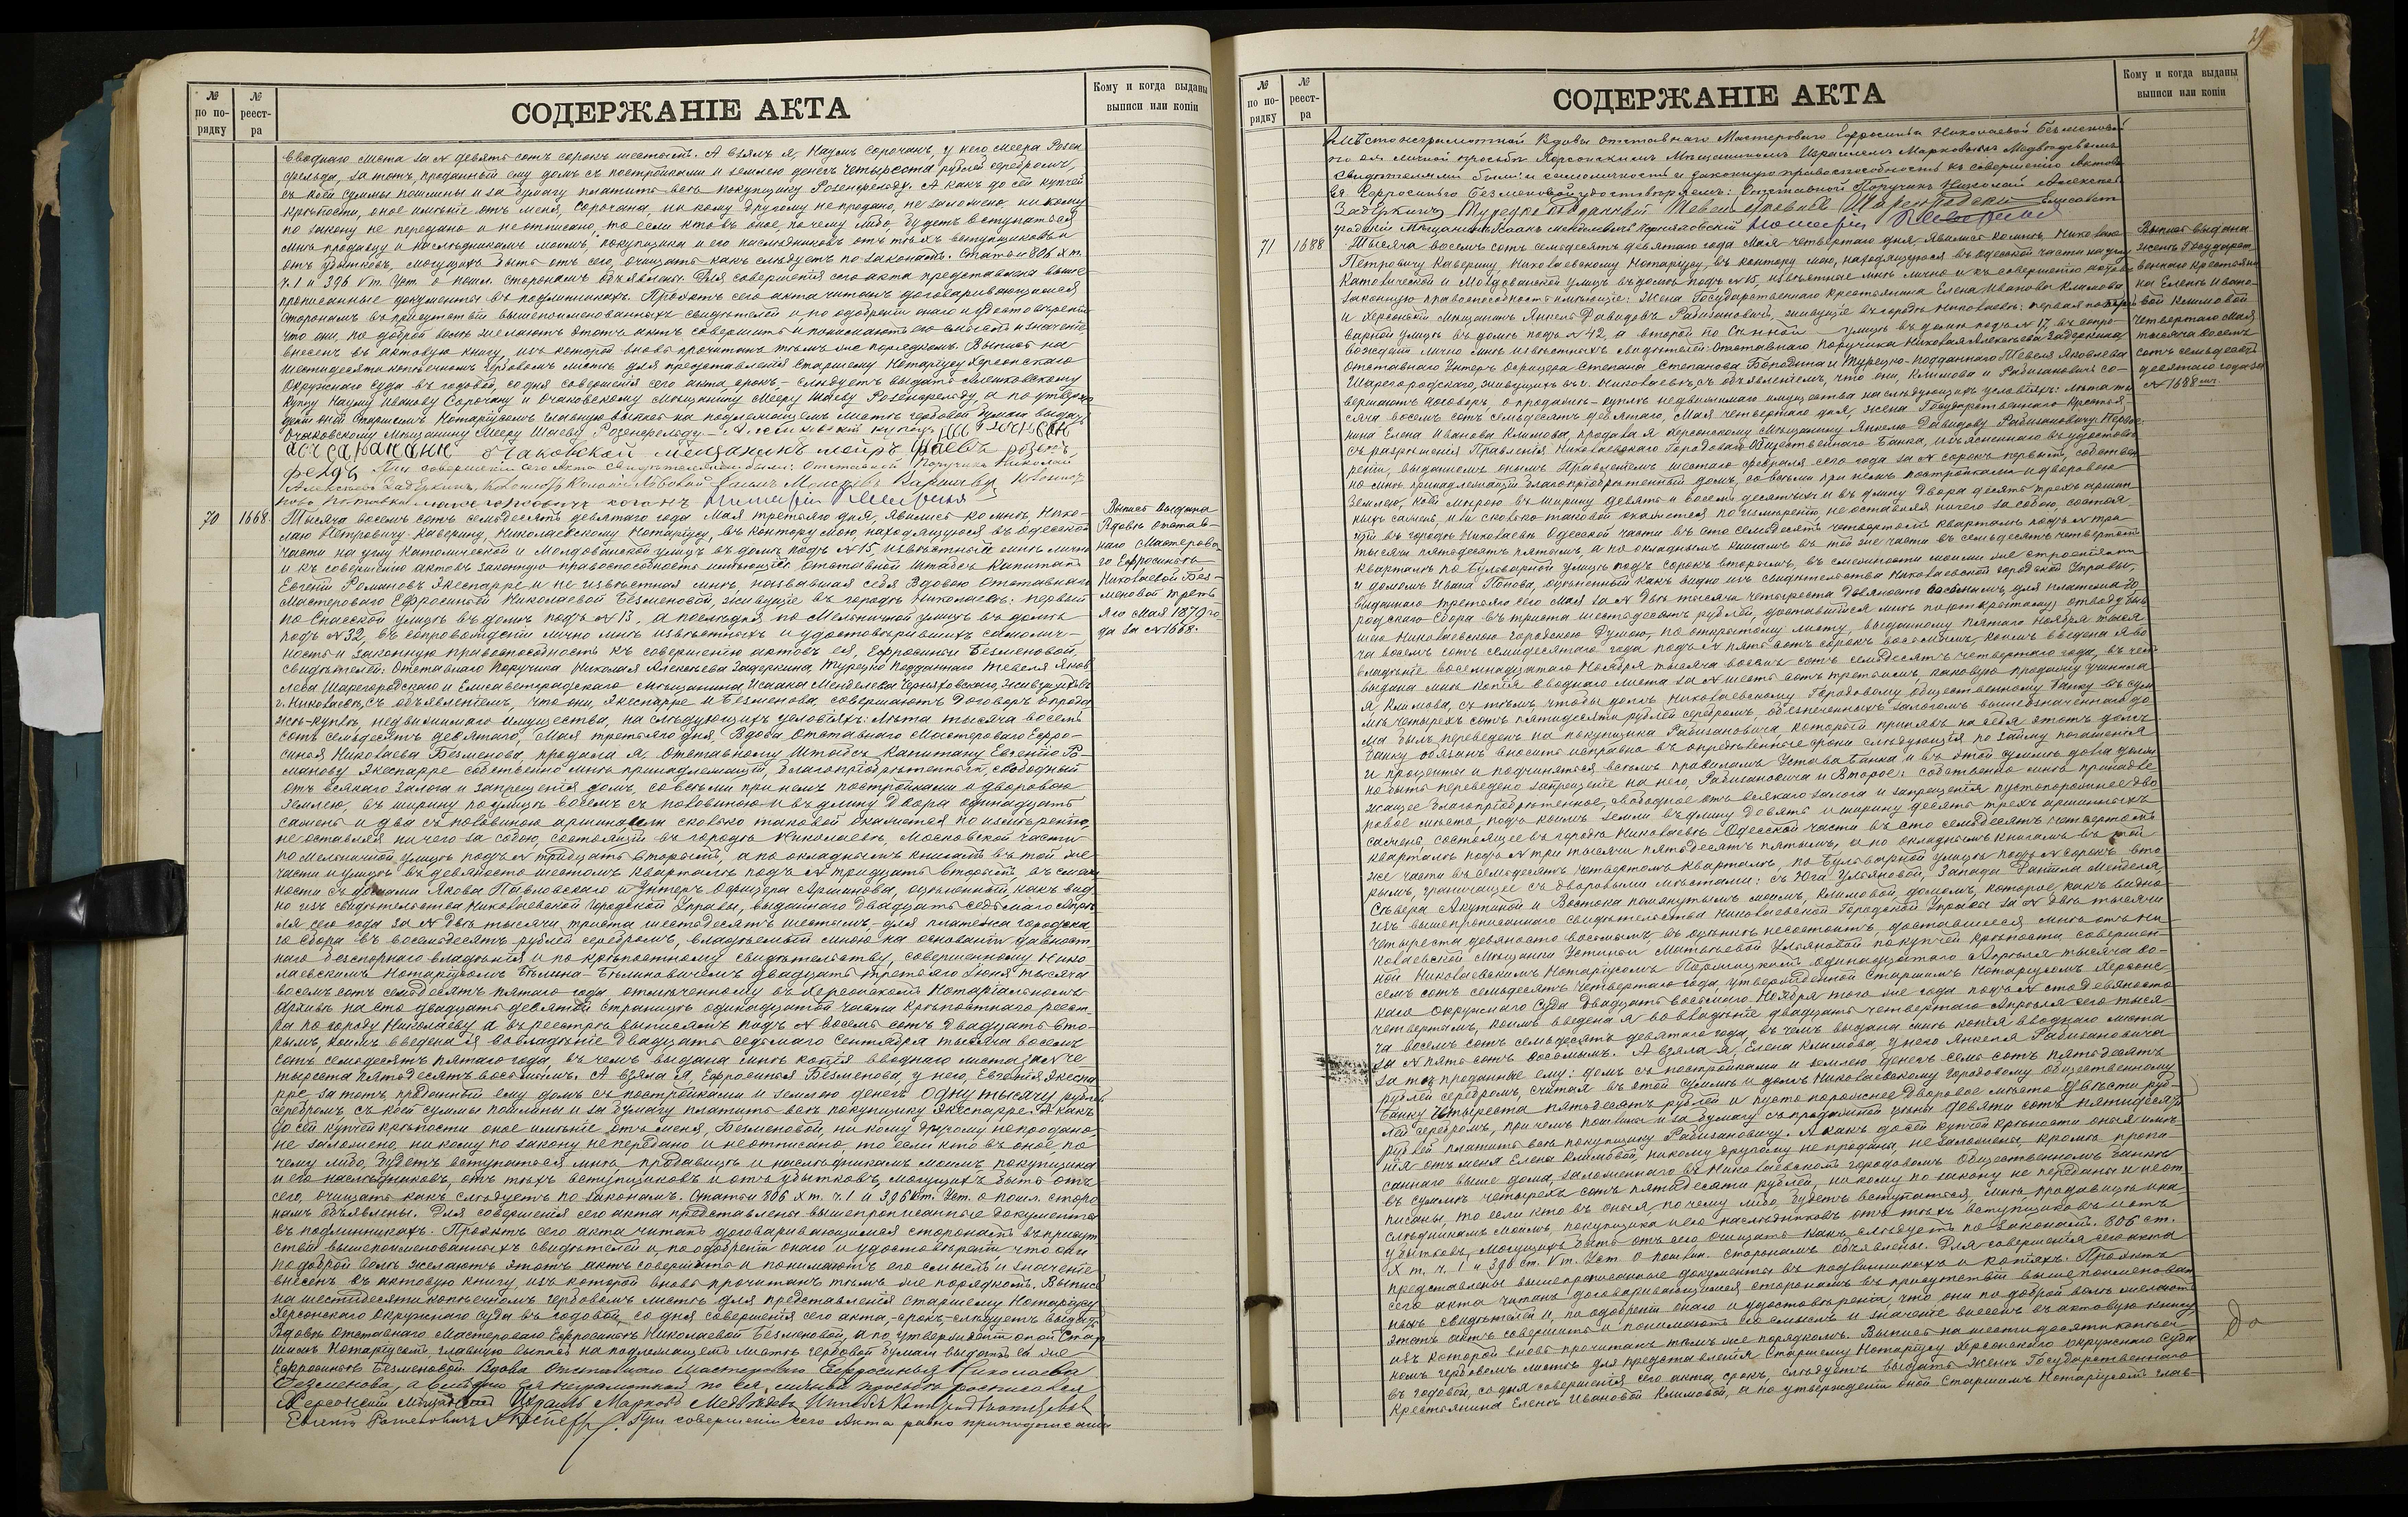 № по по-рядку
№ реест-ра
СОДЕРЖАНІЕ АКТА
Кому и когда выданы выписи или копіи
вводнаго листа за № девятьсотъ сорокъ шестымъ. А взялъ я, Наумъ Сорочанъ, у него Меера Розен
фельда, за тотъ, проданный ему домъ съ постройками и землею денегъ четыреста рублей серебромъ,
съ коей суммы пошлины и за бумагу платить весь покупщику Розенфельду. А какъ до сей купчей
крѣпости, оное имѣніе отъ меня, Сорочана, ни кому другому не продано, не заложено, ни кому
по закону не передано и не отписано, то если кто въ оное, почему либо, будетъ вступаться
мнѣ продавцу и наслѣдникамъ моимъ, покупщика и его наслѣдниковъ отъ тѣхъ вступщиковъ и
отъ убытковъ, могущихъ быть отъ сего, очищать какъ слѣдуетъ по законамъ. Статьи 806 X т.
ч. 1 и 396 V т. Уст. о пошл. сторонамъ объявлены. Для совершенія сего акта представлены выше-
прописанные документы въ подлинникахъ. Проэктъ сего акта читанъ договаривающимся
сторонамъ въ присутствіи вышепоименованныхъ свидѣтелей и по одобреніи онаго и удостовѣреніи
что они, по доброй волѣ желаютъ этотъ актъ совершить и понимаютъ его смыслъ и значеніе
внесенъ въ актовую книгу, изъ которой вновь прочитанъ тѣмъ же порядкомъ. Выпись на
шестидесяти копѣечномъ гербовомъ листѣ для представленія Старшему Нотаріусу Херсонскаго
Окружнаго Суда въ годовой, со дня совершенія сего акта срокъ,- слѣдуетъ выдать
купцу Науму Иванову Сорочану и Очаковскому мѣщанину Мееру Шаеву Розенфельду, а по утвержде
деніи оной Старшимъ Нотаріусомъ главную выпись на подлежащемъ листѣ гербовой бумаги выдать
Очаковскому мѣщанину Мееру Шаеву Розенфельду.
очаковской мещанинъ мейръ шаевъ розен
фелдъ При совершеніи сего Акта свидѣтелями были: Отставной Поручикъ Николай
Алексѣевъ Задеркинъ,
70
1668.
Тысяча восемь сотъ семьдесятъ девятаго года Мая третьяго дня, явились ко мнѣ, Нико-
лаю Петровичу Каверину, Николаевскому Нотаріусу, въ контору мою, находящуюся въ Одесской
части на углу Католической и Молдованской улицъ въ домѣ подъ № 15, извѣстный мнѣ лично
и къ совершенію актовъ законную правоспособность имѣющій: Отставной Штабсъ Капитанъ
Евгеній Романовъ Якеспарре и не извѣстная мнѣ, назвавшая себя Вдовою Отставнаго
Мастероваго Ефросиньей Николаевой Безменовой, живущіе въ городѣ Николаевѣ: первый
по Спасской улицѣ въ домѣ подъ № 13, а послѣдняя по Мельничной улицѣ въ домѣ
подъ № 32, въ сопровожденіи лично мнѣ извѣстныхъ и удостовѣрившихъ самолич-
ность и законную правоспособность къ совершенію актовъ ея, Ефросиньи Безменовой,
свидѣтелей: Отставнаго Поручика Николая Алексѣева Задеркина, Турецко Подданнаго Тевеля Яков
лева Шаргородскаго и Елисаветградскаго мѣщанина Исаака Менделева Черняховскаго, живущихъ въ
г. Николаевѣ, съ объявленіемъ, что они, Якеспарре и Безменова, совершаютъ договоръ о прода
жѣ-куплѣ, недвижимаго имущества, на слѣдующихъ условіяхъ: Лѣта тысяча восемь
сотъ семьдесятъ девятаго, Мая третьяго дня, Вдова Отставнаго Мастероваго Ефро-
синья Николаева Безменова, продала я, Отставному Штабсъ Капитану Евгенію Ро-
манову Якеспарре собственно мнѣ принадлежащій, благопріобрѣтенный, свободный
отъ всякаго залога и запрещенія домъ, со всѣми при немъ постройками и дворовою
землею, въ ширину по улицѣ восемь съ половиною и въ длину двора одинадцать
саженъ и два съ половиною аршина, или сколько таковой окажется по измѣренію,
не оставляя ничего за собою, состоящій въ городѣ Николаевѣ, Московской части
по Мельничной улицѣ подъ № тридцать вторымъ, а по окладнымъ книгамъ въ той же
части и улицѣ въ девяносто шестомъ кварталѣ подъ № тридцать вторымъ, въ смеж
ности съ домами Якова Павловскаго и Унтеръ Офицера Аршинова, оцѣненный, какъ вид
но изъ свидѣтельства Николаевской Городской Управы, выданнаго двадцать седьмаго Апрѣ
ля сего года за № двѣ тысячи триста шестьдесятъ шестымъ,- для платежа городска
го сбора въ восемьдесятъ рублей серебромъ, владѣемый мною на основаніи давност
наго безспорнаго владѣнія и по крѣпостному свидѣтельству, совершенному Нико
лаевскимъ Нотаріусомъ Бѣлина-Бѣлиновичемъ двадцать третьяго Іюня тысяча
восемь сотъ семьдесятъ пятаго года, отмѣченному въ Херсонскомъ Нотаріальномъ
Архивѣ на сто двадцать девятой страницѣ одинадцатой части крѣпостнаго реест
ра по городу Николаеву а въ реестрѣ выписямъ подъ № восемь сотъ двадцать вто-
рымъ, коимъ введена я во владѣніе двадцать седьмаго Сентября тысяча восемь
сотъ семьдесятъ пятаго года, въ чемъ выдана мнѣ копія вводнаго листа за № че
тыреста пятьдесятъ восьмымъ. А взяла я, Ефросинья Безменова, у него, Евгенія Якеспа
рре, за тотъ, проданный ему домъ съ постройками и землею денегъ одну тысячу рублей
серебромъ, съ коей суммы пошлины и за бумагу платить всѣ покупщику Якеспарре. А какъ
до сей купчей крѣпости оное имѣніе отъ меня, Безменовой, ни кому другому не продано,
не заложено, ни кому по закону не передано и не отписано, то если кто въ оное, по
чему либо, будетъ вступаться мнѣ, продавицѣ и наслѣдникамъ моимъ покупщика
и его наслѣдниковъ, отъ тѣхъ вступщиковъ и отъ убытковъ, могущихъ быть отъ
сего, очищать какъ слѣдуетъ по законамъ. Статьи 806 X т. ч. 1 и 396 V т. Уст. о пошл. сторо
намъ объявлены. Для совершенія сего акта представлены вышепрописанные документы
въ подлинникахъ. Проэктъ сего акта читанъ договаривающимся сторонамъ въ присут
ствіи вышепоименованныхъ свидѣтелей и, по одобреніи онаго и удостовѣреніи что они
по доброй волѣ желаютъ этотъ актъ совершить и понимаютъ его смыслъ и значеніе
внесенъ въ актовую книгу, изъ которой вновь прочитанъ тѣмъ же порядкомъ. Выпись
на шестидесяти копѣечномъ гербовомъ листѣ для представленія Старшему Нотаріусу
Херсонскаго Окружнаго Суда въ годовой, со дня совершенія сего акта,- срокъ,- слѣдуетъ выдать
Вдовѣ Отставнаго Мастероваго Ефросиньѣ Николаевой Безменовой, а по утвержденіи оной Стар
шимъ Нотаріусомъ, главную выпись на подлежащемъ листѣ гербовой бумаги выдать ей же
Ефросиньѣ Безменовой. Вдова Отставнаго Мастероваго Ефросинья Николаева
Безменова, а вмѣсто ея неграмотной по ея личной просьбѣ росписался
Херсонскій Мѣщанинъ Израиль Марковъ Медвѣдевъ Штабсъ Капитанъ
Евгеній Романовичъ При совершеніи сего Акта равно приподписаніи
Выпись выдана
Вдовѣ отстав-
наго Мастерова-
го Ефросиньѣ
Николаевой Без-
меновой треть-
яго Мая 1879 го-
да за № 1668.
29
№ по по-рядку
№ реест-ра
СОДЕРЖАНІЕ АКТА
Кому и когда выданы выписи или копіи
вмѣсто неграмотной Вдовы отставнаго Мастероваго Ефросиньи Николаевой Безменовой
по ея личной просьбѣ Херсонскимъ Мѣщаниномъ Израилемъ Марковымъ Медвѣдевымъ
свидѣтелями были: и самоличность и законную правоспособность къ совершенію Актовъ
ея Ефросиньи Безменовой удостовѣряемъ: Отставной Поручикъ Николай Алексѣевъ
Задеркинъ Турецко Подданный Тевель Яковлевъ Шаргородскій Елисавет
градскій Мѣщанинъ Исаакъ Менделевъ Черняховскій Нотаріусъ
71
1688
Тысяча восемь сотъ семьдесятъ девятаго года Мая четвертаго дня, явились ко мнѣ, Николаю
Петровичу Каверину, Николаевскому Нотаріусу, въ контору мою, находящуюся въ Одесской части на углу
Католической и Молдованской улицъ въ домѣ подъ № 15, извѣстные мнѣ лично и къ совершенію актовъ
законную правоспособность имѣющіе: Жена Государственнаго крестьянина Елена Иванова Климова
и Херсонскій Мѣщанинъ Янкель Давидовъ Рабиганович, живущіе въ городѣ Николаевѣ: первая по Буль
варной улицѣ въ домѣ подъ № 42, а второй по Сѣнной улицѣ въ домѣ подъ № 17, въ сопро-
вожденіи лично мнѣ извѣстныхъ свидѣтелей: Отставнаго Поручика Николая Алексѣева Задеркина,
Отставнаго Унтеръ Офицера Степана Степанова Бородина и Турецко-подданнаго Тевеля Яковлева
Шаргородскаго, живущихъ въ г. Николаевѣ, съ объявленіемъ, что они, Климова и Рабигановичъ со-
вершаютъ договоръ о продажѣ-куплѣ недвижимаго имущества на слѣдующихъ условіяхъ: Лѣта ты
сяча восемь сотъ семьдесятъ девятаго, Мая четвертаго дня, Жена Государственнаго крестья-
нина Елена Иванова Климова, продала я Херсонскому Мѣщанину Янкелю Давидову Рабигановичу: Первое:
съ разрѣшенія Правленія Николаевскаго Городоваго Общественнаго Банка, изъясненнаго въ удостовѣ
реніи, выданномъ онымъ Правленіемъ шестаго февраля сего года за № сорокъ первымъ, собствен
но мнѣ принадлежащій благопріобрѣтенный домъ, со всѣми при немъ постройками и дворовою
землею, коей мѣрою въ ширину девять и восемь десятыхъ и въ длину двора десять трехъ аршин
ныхъ саженъ, или сколько таковой окажется по измѣренію не оставляя ничего за собою, состоя
щій въ городѣ Николаевѣ Одесской части въ сто семьдесятъ четвертомъ кварталѣ подъ № три
тысячи пятьдесятъ пятымъ, а по окладнымъ книгамъ въ той же части въ семьдесятъ четвертомъ
кварталѣ по Бульварной улицѣ подъ сорокъ вторымъ, въ смежности моими же строеніями
и домомъ Ивана Попова, оцѣненный какъ видно изъ свидѣтельства Николаевской городской Управы,
выданнаго третьяго сего Мая за № двѣ тысячи четыреста девяносто восьмымъ, для платежа го-
родскаго сбора въ триста шестьдесятъ рублей, доставшійся мнѣ по открытому отводу быв
шею Николаевскою Городскою Думою, по открытому листу, выданному пятаго Ноября тыся
ча восемь сотъ семидесятаго года подъ № пять сотъ сорокъ восьмымъ, коимъ введена я во
владѣніе восемнадцатаго Ноября тысяча восемь сотъ семьдесятъ четвертаго года, въ чемъ
выдана мнѣ копія вводнаго листа за № шесть сотъ третьимъ, каковую продажу учинила
я Климова, съ тѣмъ, чтобы долгъ Николаевскому Городовому Общественному Банку въ сум
мѣ четырехъ сотъ пятидесяти рублей серебромъ, обезпеченныхъ залогомъ вышеозначеннаго до
ма былъ переведенъ на покупщика Рабигановича, который принявъ на себя этотъ долгъ
Банку обязанъ вносить исправно въ опредѣленные сроки слѣдующія по займу погашенія
и проценты и подчиняться всѣмъ правиламъ Устава Банка и въ этой суммѣ долга долж
но быть переведено запрещеніе на него, Рабигановича и Второе: собственно мнѣ принадле
жащее благопріобрѣтенное, свободное отъ всякаго залога и запрещенія пустопорожнее дво
ровое мѣсто, подъ коимъ земли въ длину девять и ширину десять трехъ аршинныхъ
саженъ, состоящее въ городѣ Николаевѣ Одесской части въ сто семьдесятъ четвертомъ
кварталѣ подъ № три тысячи пятьдесятъ пятымъ, а по окладнымъ книгамъ въ той
же части въ семьдесятъ четвертомъ кварталѣ, по Бульварной улицѣ подъ № сорокъ вто
рымъ, граничащее съ дворовыми мѣстами: съ Юга Ульяновой, Запада Фаила Менделя,
Сѣвера Акутиной и Востока помянутымъ моимъ, Климовой, домомъ, которое, какъ видно
изъ вышепрописаннаго свидѣтельства Николаевской Городской Управы за № двѣ тысячи
четыреста девяносто восьмымъ, въ оцѣнкѣ не состоитъ, доставшееся мнѣ отъ Ни
колаевской Мѣщанки Устиньи Матвѣевой Ульяновой покупчей крѣпости совершен-
ной Николаевскимъ Нотаріусомъ одинадцатаго Апрѣля тысяча во-
семь сотъ семьдесятъ четвертаго года, утвержденной Старшимъ Нотаріусомъ Херсонс
каго Окружнаго Суда двадцать восьмаго Ноября того же года подъ № сто девяносто
четвертымъ, коимъ введена я во владѣніе двадцать четвертаго Апрѣля сего тыся
ча восемь сотъ семьдесятъ девятаго года, въ чемъ выдана мнѣ копія вводнаго листа
за № пять сотъ восьмымъ. А взяла я, Елена Климова, у него Янкеля Рабигановича
за тѣ, проданные ему: домъ съ постройками и землею денегъ семь сотъ пятьдесятъ
рублей серебромъ, считая въ этой суммѣ и долгъ Николаевскому городовому Общественному
Банку четыреста пятьдесятъ рублей и пусто порожнее дворовое мѣсто двѣсти руб-
лей серебромъ, при чемъ пошлины и за бумагу съ продажной цѣны девяти сотъ пятидесяти
рублей платить всѣ покупщику Рабигановичу. А какъ до сей купчей крѣпости оныя имѣ-
нія отъ меня Елены Климовой, никому другому не проданы, не заложены, кромѣ пропи-
саннаго выше дома, заложеннаго въ Николаевскомъ городовомъ Общественномъ Банкѣ
въ суммѣ четырехъ сотъ пятидесяти рублей, ни кому по закону не переданы и не от
писаны, то если кто въ оныя, по чему либо, будетъ вступаться, мнѣ, продавицѣ и на-
слѣдникамъ моимъ, покупщика и его наслѣдниковъ отъ тѣхъ вступщиковъ и отъ
убытковъ, могущихъ быть отъ сего очищать какъ слѣдуетъ по законамъ. 806 ст.
X т. ч. 1 и 396 ст. V т. Уст. о пошлин. сторонамъ объявлены. Для совершенія сего акта
представлены вышепрописанные документы въ подлинникахъ и копіяхъ. Проэктъ
сего акта читанъ договаривающимся сторонамъ въ присутствіи вышепоименован
ныхъ свидѣтелей и, по одобреніи онаго и удостовѣреніи, что они по доброй волѣ желаютъ
этотъ актъ совершить и понимаютъ его смыслъ и значеніе внесенъ въ актовую книгу
изъ которой вновь прочитанъ тѣмъ же порядкомъ. Выпись на шестидесяти копѣеч-
номъ гербовомъ листѣ для представленія Старшему Нотаріусу Херсонскаго Окружнаго Суда
въ годовой, со дня совершенія сего акта, срокъ, слѣдуетъ выдать Женѣ Государственнаго
крестьянина Еленѣ Ивановой Климовой, а по утвержденіи оной Старшимъ Нотаріусомъ глав-
Выпись выдана
Женѣ Государст-
веннаго крестьяни
на Еленѣ Ивано-
вой Климовой
Четвертаго Мая
тысяча восемь
сотъ семьдесятъ
девятаго года за
№ 1688